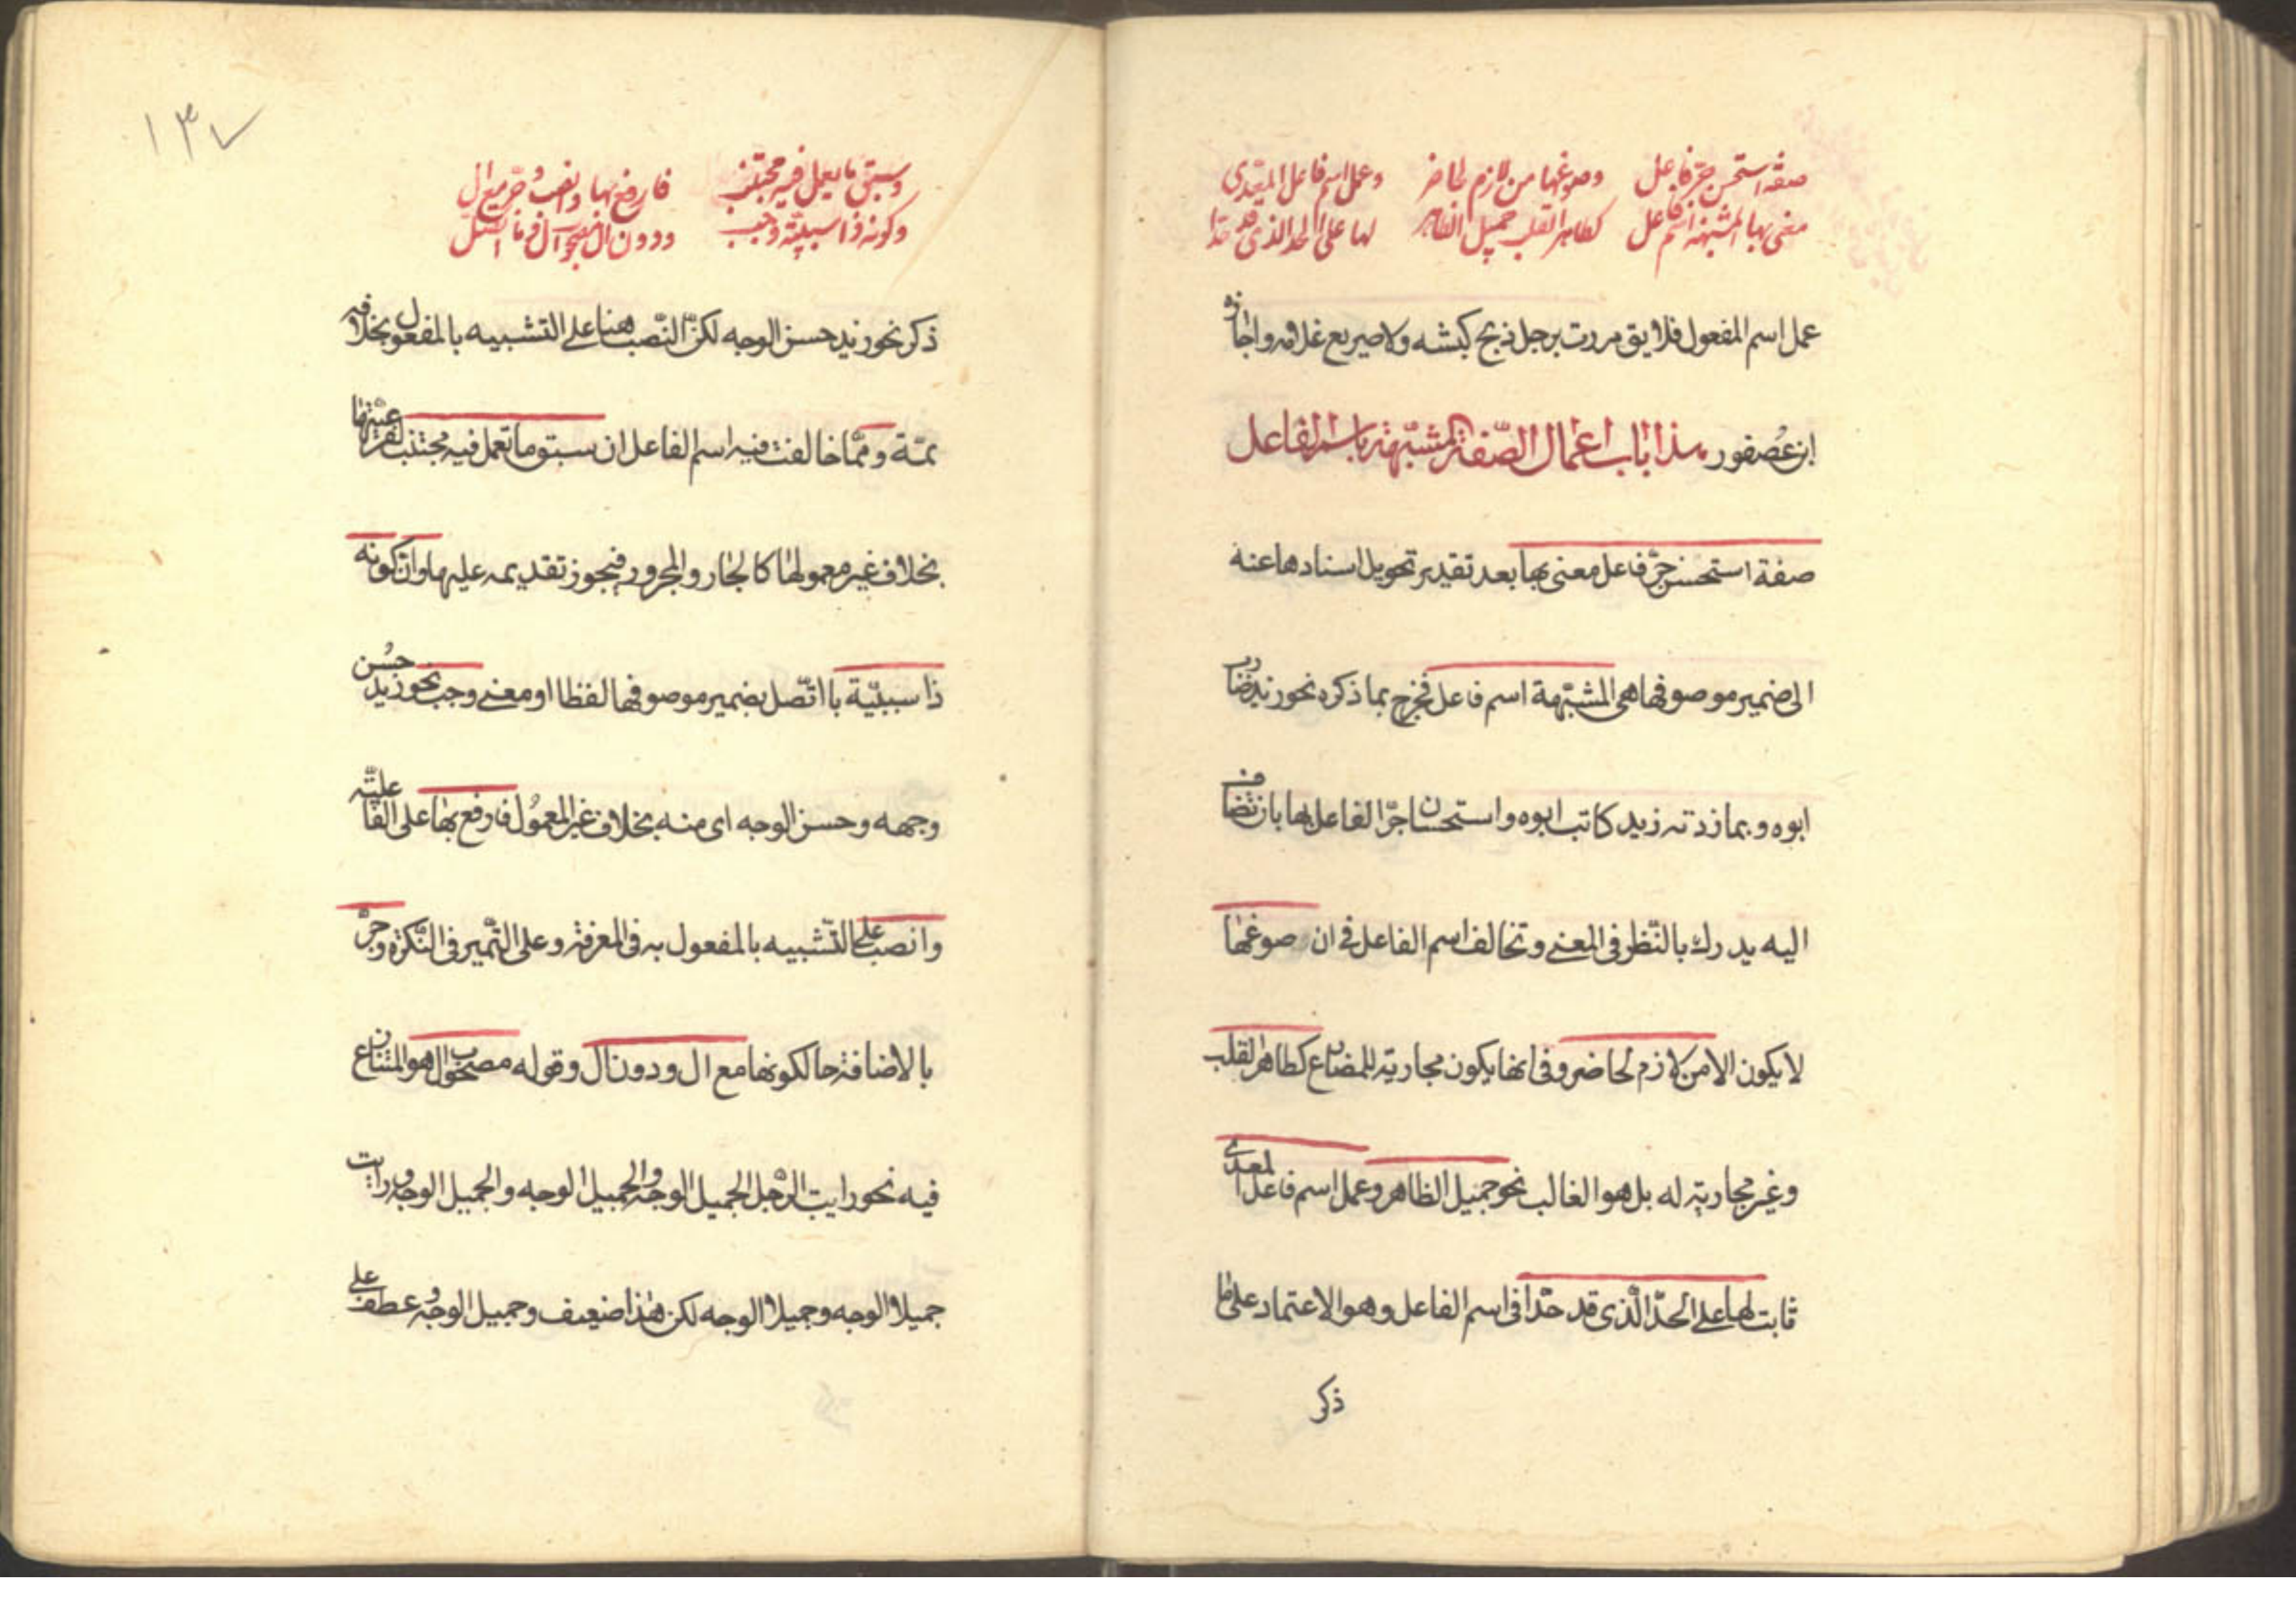 صفة استحسن جر فاعل وصوغها من لازم لحاضر وعمل اسم فاعل المعدى
معنى بها المشبهة اسم فاعل كطاهر القلب جميل الظاهر لها على الحد الذى قد حدا
عمل اسم المفعول فلا يق مررت برجل ذبح كبشه ولا صريع غلامه واجازه
ابن عُصفور هذا باب اعمال الصّفة المشبّهة باسم الفاعل
صفة استحسن جرّ فاعل معنى بها بعد تقدير تحويل اسنادها عنه
الى ضمير موصوفها هى المشبّهة اسم فاعل فخرج بما ذكره نحو زيد ضارب
ابوه وبما زدته زيد كاتب ابوه واستحسان جرّ الفاعل بها بان تضاف
اليه يدرك بالنّظر فى المعنى وتخالف اسم الفاعل فى ان صوغها
لا يكون الا من لازم لحاضر وفى انها يكون مجارية للمضارع كطاهر القلب
وغير مجارية له بل هو الغالب نحو جميل الظاهر وعمل اسم فاعل المعدى
ثابت لها على الحدّ الّذى قد حدّا فى اسم الفاعل وهو الاعتماد على ما
ذكر
١٣٧
وسبق ما يعمل فيه مجتنب فارفع بها وانصب وجر مع ال
وكونه ذا سببية وجب ودون ال مصحوب ال وما اتصل
ذكر نحو زيد حسن الوجه لكنّ النّصب هنا على التشبيه بالمفعول بخلافه
ثمّة وممّا خالفت فيه اسم الفاعل ان سبق ما تعمل فيه مجتنب لفرعيّتها
بخلاف غير معمولها كالجار والمجرور فيجوز تقديمه عليها وان كونه
ذا سببيّة با اتّصل بضمير موصوفها لفظا او معنى وجب نحو زيد حسُن
وجهه وحسن الوجه اى منه بخلاف غير المعمُول فارفع بها على الفاعليّة
وانصب على التّشبيه بالمفعول به فى المعرفة وعلى التّميز فى النّكرة وجرّ
بالاضافة حالكونها مع ال ودون ال وقوله مصحوب ال هو المتنازع
فيه نحو رايت الرّجل الجميل الوجهُ والجميل الوجه والجميل الوجه ورايت
جميلا الوجه وجميلا الوجه لكن هذا ضعيف وجميل الوجه وعطف على